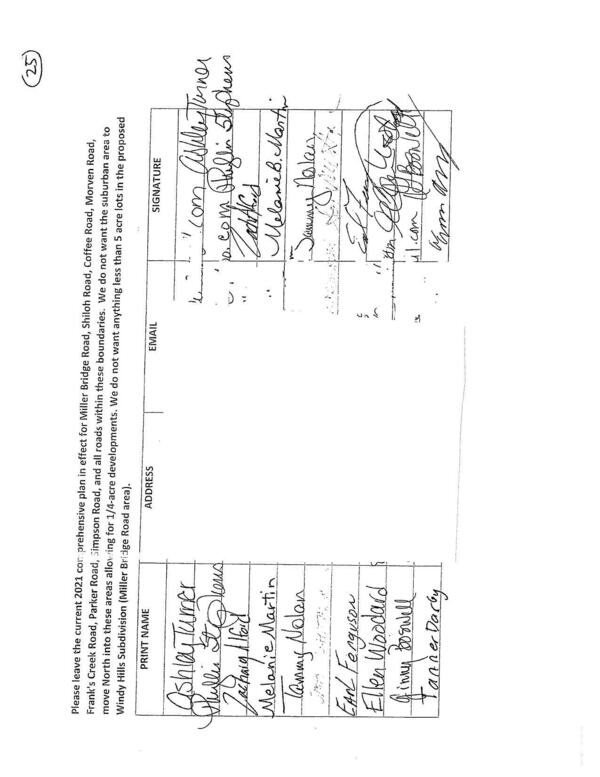 25
Please leave the current 2021 comprehensive plan in effect for Miller Bridge Road, Shiloh Road, Coffee Road, Morven Road,
Frank's Creek Road, Parker Road, Simpson Road, and all roads within these boundaries. We do not want the suburban area to
move North into these areas allowing for 1/4-acre developments. We do not want anything less than 5 acre lots in the proposed
Windy Hills Subdivision (Miller Bridge Road area).
PRINT NAME ADDRESS EMAIL SIGNATURE
Ashley Turner .com Ashley Turner
Phyllis Stephens .com Phyllis Stephens
Zachary Alford
Melanie Martin Melanie B. Martin
Tammy Nolan Tammy Nolan
Earl Ferguson
Ellen Woodard
Jimmy Boswell .com
Tanner Darby